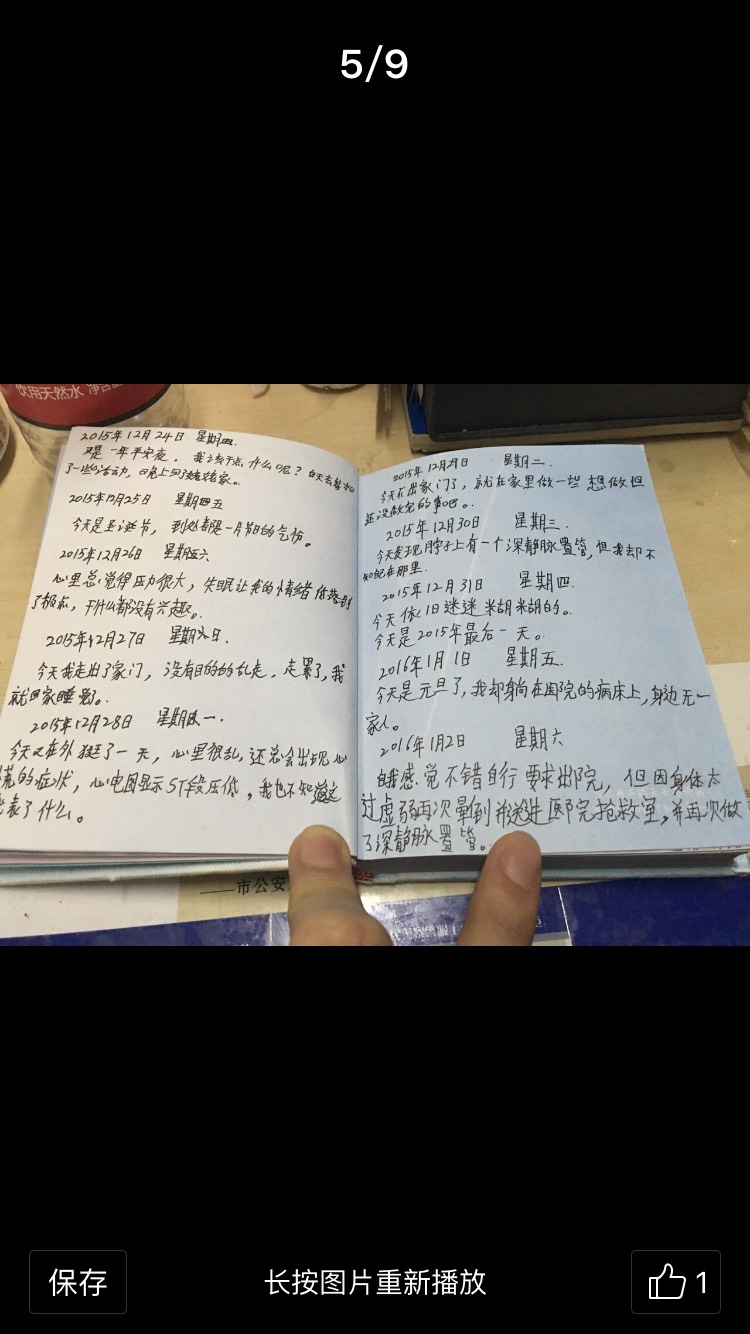 5/9
饮用天然水 净含
2015年12月24日 星期四
又是一年平安夜。我该干点什么呢?白天去参加
了一些活动,晚上回了家。
2015年12月25日 星期五
今天是圣诞节,到处都是一片节日的气氛。
2015年12月26日 星期六
心里总觉得压力很大,失眠让我的情绪低落到
了极点,干什么都没有兴趣。
2015年12月27日 星期日.
今天我走出了家门,没有目的的乱走,走累了,我
就回家睡觉。
2015年12月28日 星期一.
今天又在外逛了一天,心里很乱,还总会出现心
慌的症状,心电图显示ST段压低,我也不知道这
代表了什么。
2015年12月29日 星期二.
今天不出家门了,就在家里做一些想做但
还没做完的事吧。
2015年12月30日 星期三.
今天发现脖子上有一个深静脉置管,但我却不
知配在那里.
2015年12月31日 星期四.
今天依旧迷迷米胡米胡的。
今天是2015年最后一天。
2016年1月1日 星期五.
今天是元旦了,我却躺在医院的病床上,身边无一
家人。
2016年1月2日 星期六
自我感觉不错自行要求出院,但因身体太
过虚弱再次晕倒并送进医院抢救室,并再次做
了深静脉置管。
市公安
保存
长按图片重新播放
1